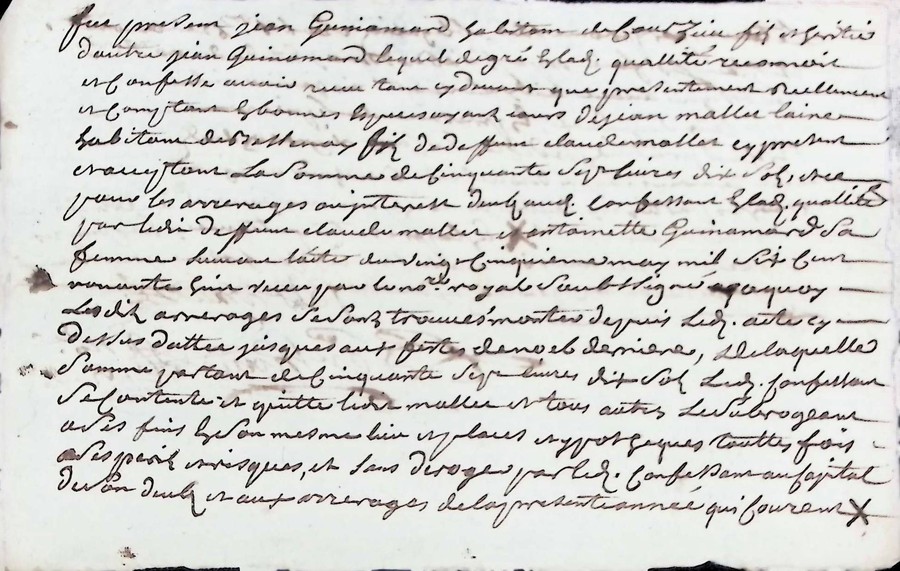 fut present jean Guinamard habitant de Courzieu filz et héritié
dautre jean Guinamard lequel de gré Esd. quallité recognoit
et Confesse avoir receu tant cy devant que presentement reellement
et Comptant En bonnes Especes ayant cours de jean mallet laine
habitant de filz de deffunt claude mallet cy present
et acceptant La Somme de Cinquante Sept livres dix Solz, et ce
pour les arrerages ou interest deubz aud. Confessant Esd. quallité
par ledit deffunt claude mallet et antoinette Guinamard Sa
femme Suivant lacte du vingt Cinquieme may mil Six Cent
nonante huit receu par le no.re royal Soubssigné a quoy
Lesdits arrerages Se Sont trouvés monter depuis Led. acte cy
dessus datté jusques aux festes de noel derniere, de laquelle
Somme partant de Cinquante Sept livres dix Solz Led. Confessant
Se Contente et quitte ledit mallet et tous autres Le Subrogeant
a Ses fins En Son mesme lieu et places et ypotheques touttes fois
a Ses perilz et risques, et Sans deroger par led. Confessant au Capital
de Son deub et aux arrerages de la presente année qui Courent X